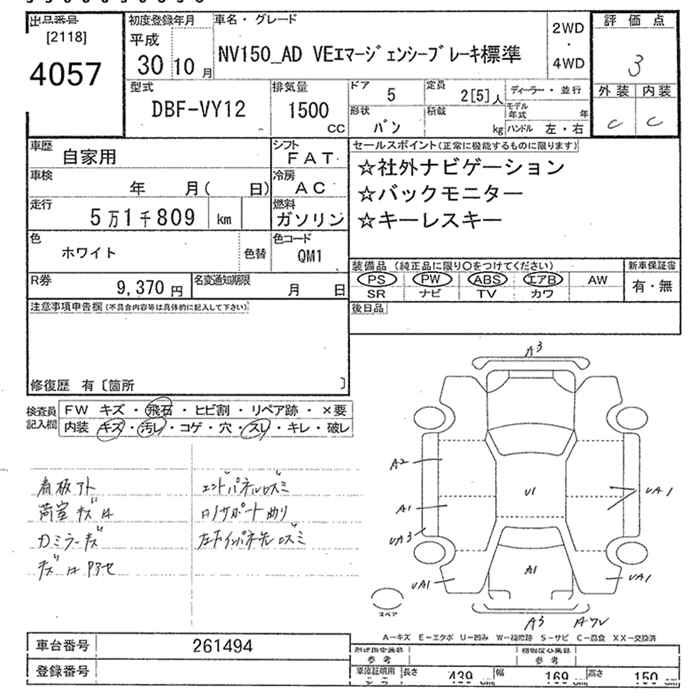 出品番号
[2118]
4057
初度登録年月
平成
30年10月
車名・グレード
NV150_AD VEエマージェンシーブレーキ標準
2WD
・
4WD
評価点
3
外装 内装
C C
型式
DBF-VY12
排気量
1500
CC
ドア 5
形状 バン
定員 2[5]人
積載 kg
ディーラー・並行
モデル年式 年
ハンドル 左・右
車歴 自家用
シフト FAT
車検 年 月( 日)
冷房 AC
走行 5万1千809 km
燃料 ガソリン
色 ホワイト
色替
色コード QM1
R券 9,370 円
名変通知期限 月 日
セールスポイント(正常に機能するものに限ります)
☆社外ナビゲーション
☆バックモニター
☆キーレスキー
装備品 (純正品に限り〇をつけてください)
PS PW ABS エアB AW
SR ナビ TV カワ
新車保証書
有・無
後日品
注意事項申告欄(不具合内容等は具体的に記入して下さい)
修復歴 有〔箇所 〕
検査員記入欄
FW キズ・飛石・ヒビ割・リペア跡・×要
内装 キズ・汚レ・コゲ・穴・スレ・キレ・破レ
看板アト
荷室キズ凹
カミラーキズ
エンドパネルロズミ
A3
A2
A1
U1
UA1
UA3
UA1
A1
UA1
A3
スペア
A－キズ E－エクボ U－凹み W－補修跡 S－サビ C－腐食 XX－交換済
車台番号 261494
登録番号
型式指定番号
参考
類別区分番号
参考
長さ 439 cm 幅 169 cm 高さ 150 cm